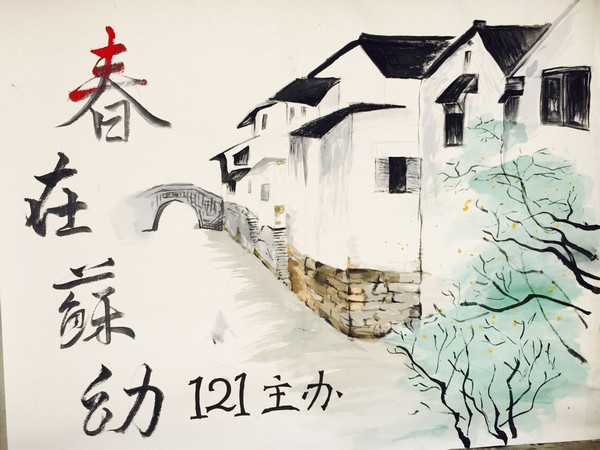 春在蘇幼
121主办